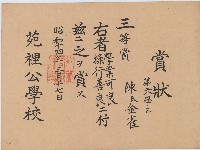 賞狀
第六學年
陳氏金雀
三等賞
右者學業可良
操行善良ニ付
茲ニ之ヲ賞ス
昭和四年三月廿七日
苑裡公學校